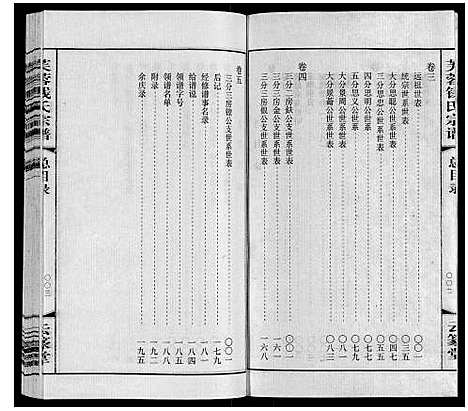 芙蓉钱氏宗谱
总目录
〇〇二
云篆堂
卷三
远祖世表 〇〇一
统宗世系表 〇三五
大分思聪公世系 〇四三
三分思忠公世系
四分思明公世系
五分思义公世系 〇七九
大分景周公世系 〇八〇
大分景斋公世系 〇八三
卷四
三分二房 公支世系世表 〇〇一
三分三房金公支世系世表 一六一
三分三房银公支世系世表 一六八
卷五
三分三房 公支世系世表 〇〇一
后记 一七九
经修谱事名录 一八一
给谱说 一八四
领谱字号 一八七
领谱名单 一八八
附录 一九二
余庆录 一九五
芙蓉钱氏宗谱
总目录
〇〇三
云篆堂